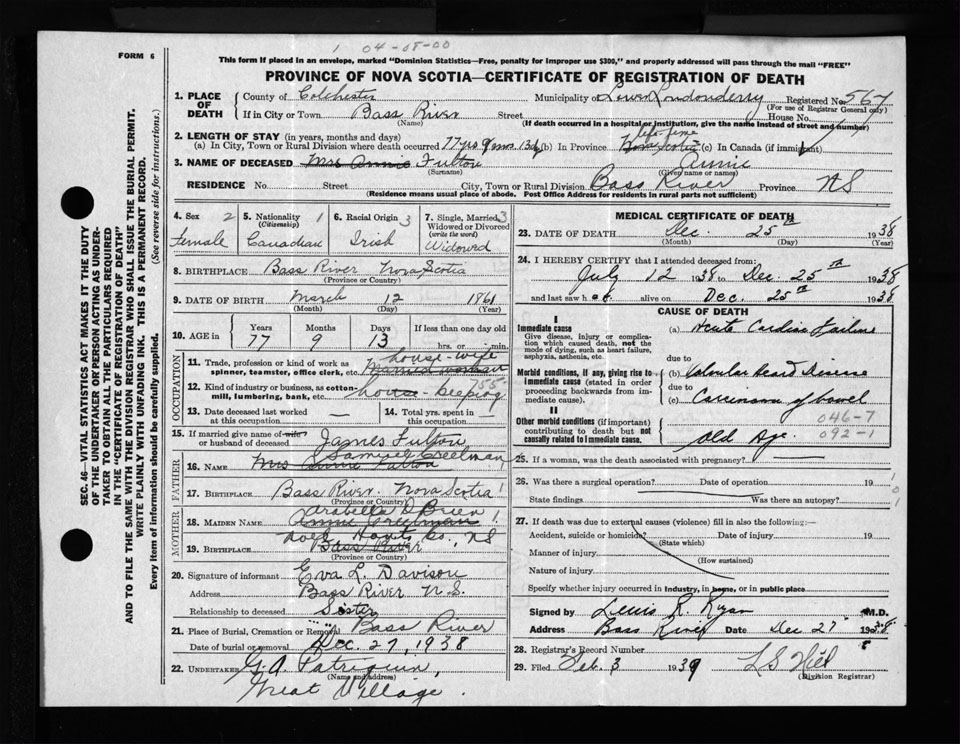 1 04-08-00
FORM 6
This form If placed in an envelope, marked "Dominion Statistics—Free, penalty for improper use $300," and properly addressed will pass through the mail "FREE"
PROVINCE OF NOVA SCOTIA—CERTIFICATE OF REGISTRATION OF DEATH
1. PLACE OF DEATH County of Colchester Municipality of Lower Londonderry Registered No. 567
(For use of Registrar General only)
If in City or Town Bass River Street House No.
(Name) (If death occurred in a hospital or institution, give the name instead of street and number)
2. LENGTH OF STAY (in years, months and days)
(a) In City, Town or Rural Division where death occurred 77 yrs 9 mos. 13 dy (b) In Province life time Nova Scotia (c) In Canada (if immigrant)
3. NAME OF DECEASED Mrs Annie Fulton Annie
(Surname) (Given name or names)
RESIDENCE No. Street City, Town or Rural Division Bass River Province NS
(Residence means usual place of abode. Post Office Address for residents in rural parts not sufficient)
4. Sex 2 Female
5. Nationality (Citizenship) 1 Canadian
6. Racial Origin 3 Irish
7. Single, Married, Widowed or Divorced (write the word) 3 Widowd
8. BIRTHPLACE Bass River Nova Scotia
(Province or Country)
9. DATE OF BIRTH March 12 1861
(Month) (Day) (Year)
10. AGE in Years Months Days If less than one day old
77 9 13 hrs. or min.
OCCUPATION
11. Trade, profession or kind of work as spinner, teamster, office clerk, etc. house-wife
12. Kind of industry or business, as cotton-mill, lumbering, bank, etc. house-keeping 755
13. Date deceased last worked at this occupation —
14. Total yrs. spent in this occupation —
15. If married give name of wife or husband of deceased James Fulton
FATHER
16. NAME Samuel Creelman
Mrs Annie Fulton
17. Birthplace Bass River. Nova Scotia 1
(Province or Country)
MOTHER
18. MAIDEN NAME Arabella O'Brien 1
Annie Creelman
19. Birthplace Noel Hants Co., NS
Bass River
(Province or Country)
20. Signature of informant Eva L. Davison
Address Bass River N.S.
Relationship to deceased Sister
21. Place of Burial, Cremation or Removal Bass River
Date of burial or removal Dec. 27, 1938
22. UNDERTAKER G. A. Patriquin,
(Name and address)
Great Village.
MEDICAL CERTIFICATE OF DEATH
23. DATE OF DEATH Dec. 25th 1938
(Month) (Day) (Year)
24. I HEREBY CERTIFY that I attended deceased from:
July 12 1938 to Dec. 25th 1938
and last saw her alive on Dec. 25th 1938
CAUSE OF DEATH
I
Immediate cause
Give disease, injury or complication which caused death, not the mode of dying, such as heart failure, asphyxia, asthenia, etc.
(a) Acute Cardiac Failure
due to
Morbid conditions, if any, giving rise to immediate cause (stated in order proceeding backwards from immediate cause).
(b) Valvular Heart Disease
due to
(c) Carcinoma of bowel
II
Other morbid conditions (if important) contributing to death but not causally related to immediate cause.
046-7
092-1
Old Age.
25. If a woman, was the death associated with pregnancy?
26. Was there a surgical operation? Date of operation 19
State findings Was there an autopsy?
1
0
1
27. If death was due to external causes (violence) fill in also the following:—
Accident, suicide or homicide? Date of injury 19
(State which)
Manner of injury
(How sustained)
Nature of injury
Specify whether injury occurred in Industry, in home, or in public place
Signed by Lewis R. Ryan M.D.
Address Bass River Date Dec 27 1938
28. Registrar's Record Number 8
29. Filed Feb. 3 1939 L S Hill
(Division Registrar)
SEC. 46—VITAL STATISTICS ACT MAKES IT THE DUTY
OF THE UNDERTAKER OR PERSON ACTING AS UNDER-
TAKER TO OBTAIN ALL THE PARTICULARS REQUIRED
IN THE "CERTIFICATE OF REGISTRATION OF DEATH"
AND TO FILE THE SAME WITH THE DIVISION REGISTRAR WHO SHALL ISSUE THE BURIAL PERMIT.
WRITE PLAINLY WITH UNFADING INK. THIS IS A PERMANENT RECORD.
Every item of information should be carefully supplied. (See reverse side for instructions.)